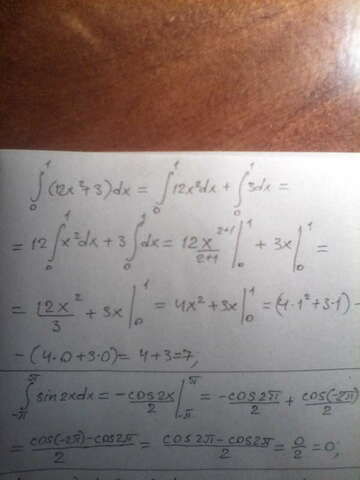 ∫₀¹ (12x²+3)dx = ∫₀¹ 12x²dx + ∫₀¹ 3dx =
= 12 ∫₀¹ x²dx + 3 ∫₀¹ dx = 12x²⁺¹/2+1 |₀¹ + 3x |₀¹ =
= 12x²/3 + 3x |₀¹ = 4x²+3x |₀¹ = (4·1²+3·1) -
- (4·0+3·0) = 4+3=7;
∫₋π^π sin2xdx = - cos2x/2 |₋π^π = - cos2π/2 + cos(-2π)/2
= cos(-2π)-cos2π/2 = cos2π-cos2π/2 = 0/2 = 0;